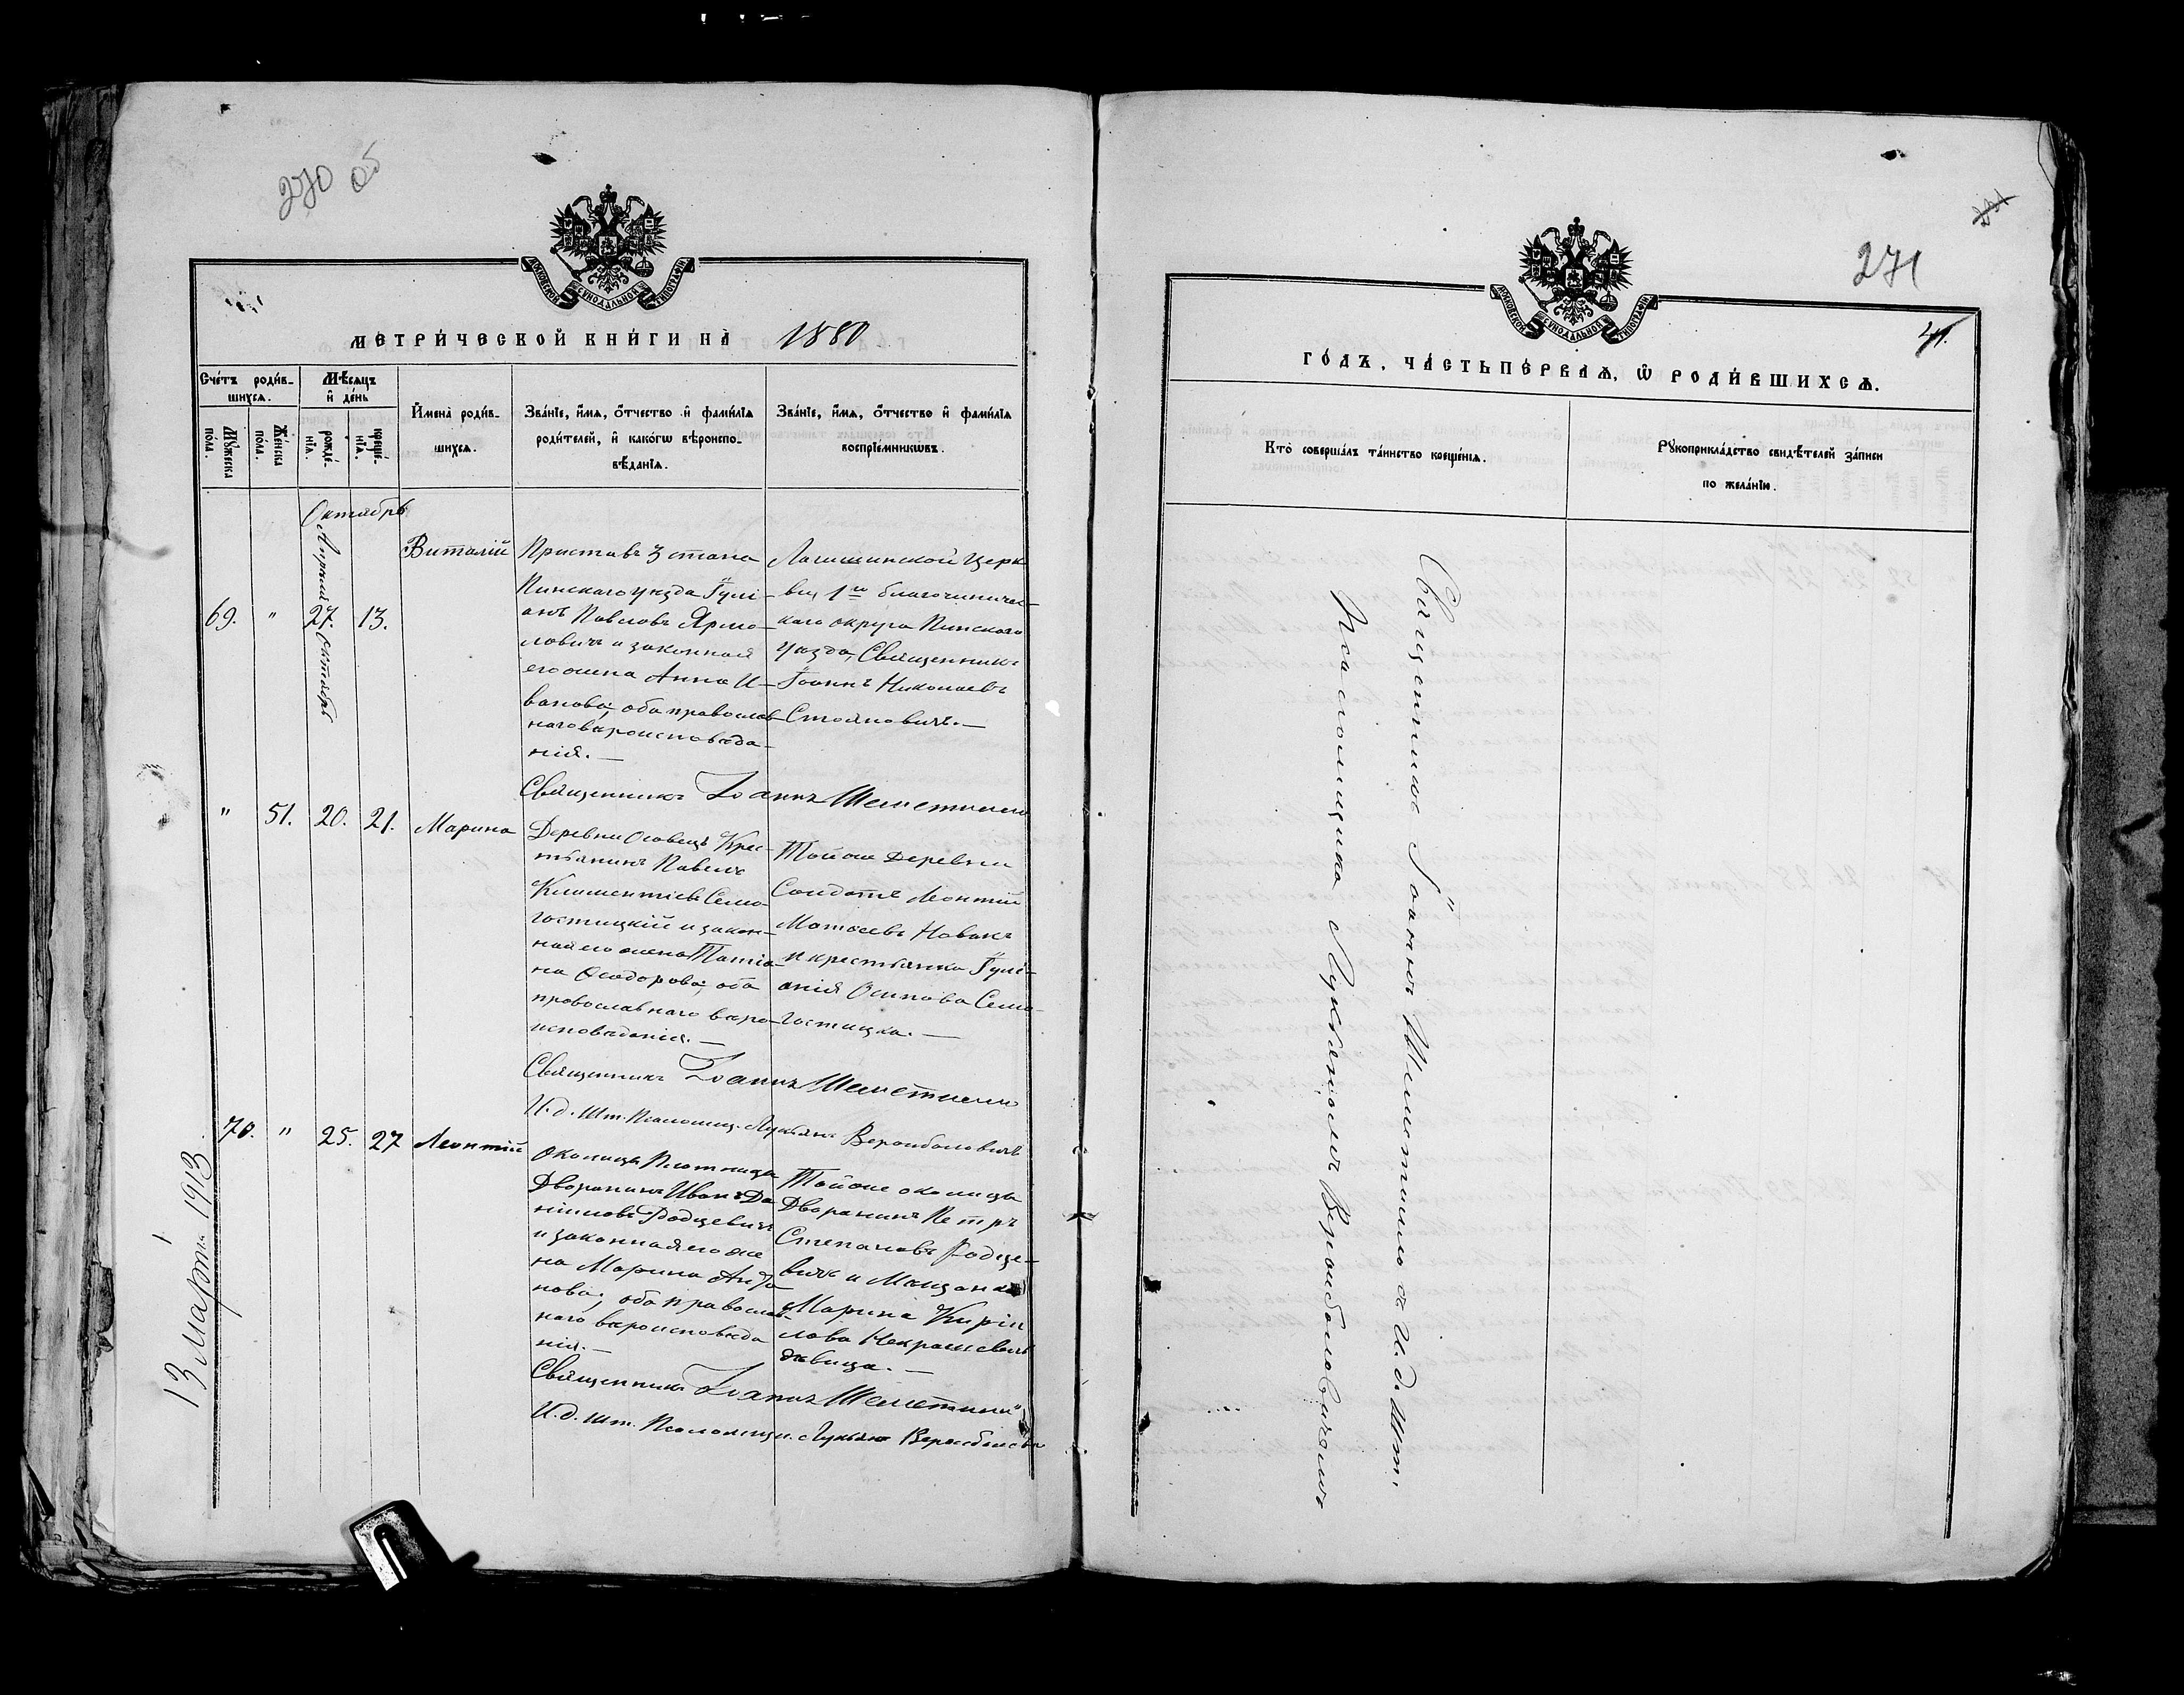 270 об
МОСКОВСКОЙ СѴНОДАЛЬНОЙ ТИПОГРАФІИ
МЕТРИ́ЧЕСКОЙ КНИ́ГИ НА̀ 1880
Сче́тъ роди́в-
шихсѧ.
Мѣ́сѧцъ
и҆ де́нь
Мꙋ́жеска
по́ла.
Же́нска
по́ла.
рожде́-
нїѧ.
креще́-
нїѧ.
И҆мена̀ роди́в-
шихсѧ.
Зва́нїе, и҆́мѧ, ѻ҆́тчество и҆ фами́лїѧ
роди́телей, и҆ како́гѡ вѣроиспо-
вѣ́данїѧ.
Зва́нїе, и҆́мѧ, ѻ҆́тчество и҆ фами́лїѧ
воспрїе́мникѡвъ.
Октябрь
Апрѣля
Октябрь
69. " 27. 13.
Виталій
Приставъ 3 стана
Пинскаго уѣзда Іулі-
анъ Павловъ Ярмо-
ловичъ и законная
его жена Анна И-
ванова; оба православ-
наго вѣроисповѣда-
нія.—
Логишинской церк
ви 1го благочиничес-
каго округа Пинскаго
уѣзда, Священникъ
Іоаннъ Николаевъ
Стояновичъ.—
Священникъ Іоаннъ Шеметилло
" 51. 20. 21. Марина
Деревни Осовецъ Крес-
тьянинъ Павелъ
Климентіевъ Само-
гостицкій и закон-
ная его жена Татіа-
на Ѳеодорова; оба
православнаго вѣро-
исповѣданія.—
Той же деревни
Солдатъ Леонтій
Матѳеевъ Новикъ
и крестьянка Іулі-
анія Осипова Само-
гостицка.—
Священникъ Іоаннъ Шеметилло
И. д. шт. Псаломщ. Лукьянъ
70. " 25. 27 Леонтій
Околицы Плотница
Дворянинъ Иванъ Да
ниловъ Родцевичъ
и законная его же
на Марина
нова; оба православ-
наго вѣроисповѣда
нія.—
Той же околицы
Дворянинъ Петръ
Степановъ Родце-
вичъ и Мѣщанка
Марина Кирил
лова Некрашевичъ
дѣвица.—
Священникъ Іоаннъ Шеметилло
И. д. шт. Псаломщ. Лукьянъ
13 Марта 1913
271
МОСКОВСКОЙ СѴНОДАЛЬНОЙ ТИПОГРАФІИ
41.
ГО́ДЪ, ЧА́СТЬ ПЕ́РВАѦ, Ѡ҆ РОДИ́ВШИХСѦ.
Кто̀ соверша́лъ та́инство креще́нїѧ.
Рꙋкоприкла́дство свидѣ́телей за́писи
по жела́нїю.
Священникъ Іоаннъ Шеметилло съ И. д. шт.
Псаломщика Лукьяномъ